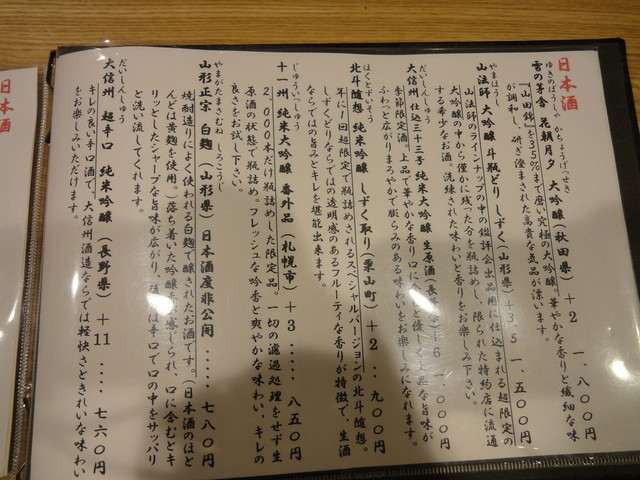 日本酒
ゆきのぼうしゃ かちょうげっせき
雪の茅舎 花朝月夕 大吟醸（秋田県）＋２ 一、八〇〇円
『山田錦』を35%まで磨い究極の大吟醸。華やかな香りと繊細な味
が調和し、研ぎ澄まされた高貴な気品が漂います。
やまほうし
山法師 大吟醸 斗瓶どり しずく（山形県）＋３．５ 一、五〇〇円
山法師のラインナップの中の鑑評会出品用に仕込まれる超限定の
大吟醸の中から僅かに残った分を瓶詰めし、限られた特約店に流通
する希少なお酒。洗練された味わいと香りをお楽しみ下さい。
だいしんしゅう
大信州 仕込三十三号 純米大吟醸 生原酒（長野県）＋６ 一、〇〇〇円
季節限定酒。上品で華やかな香り口に含むと優しく上品な旨味が
ふわっと広がりまろやかで膨らみのある味わいをお楽しみになれます。
ほくとずいそう
北斗随想 純米吟醸 しずく取り（栗山町）＋２‥ 九〇〇円
年に1回超限定で瓶詰めされるスペシャルバージョンの北斗随想。
しずくどりならではの透明感のあるフルーティな香りが特徴で、生酒
ならではの旨みとキレを堪能出来ます。
じゅういっしゅう
十一州 純米大吟醸 番外品（札幌市）＋３‥‥‥ 八五〇円
2,000本だけ瓶詰めした限定品。一切の濾過処理をせず生
原酒の状態で瓶詰め。フレッシュな吟香と爽やかな味わい、キレの
良さをお試し下さい。
やまがたまさむね しろこうじ
山形正宗 白麹（山形県）日本酒度非公開‥‥‥ 七八〇円
焼酎造りによく使われる白麹で醸されたお酒です。（日本酒のほと
んどは黄麹を使用。）落ち着いた吟醸香が感じられ、口に含むとキ
リッとしたシャープな旨味が広がり、後味は辛口で口の中をサッパリ
と洗い流してくれます。
だいしんしゅう
大信州 超辛口 純米吟醸（長野県）＋11‥‥‥ 七六〇円
キレの良い辛口酒で、大信州酒造ならでは軽快さときれいな味わい
をお楽しみいただけます。
日本酒